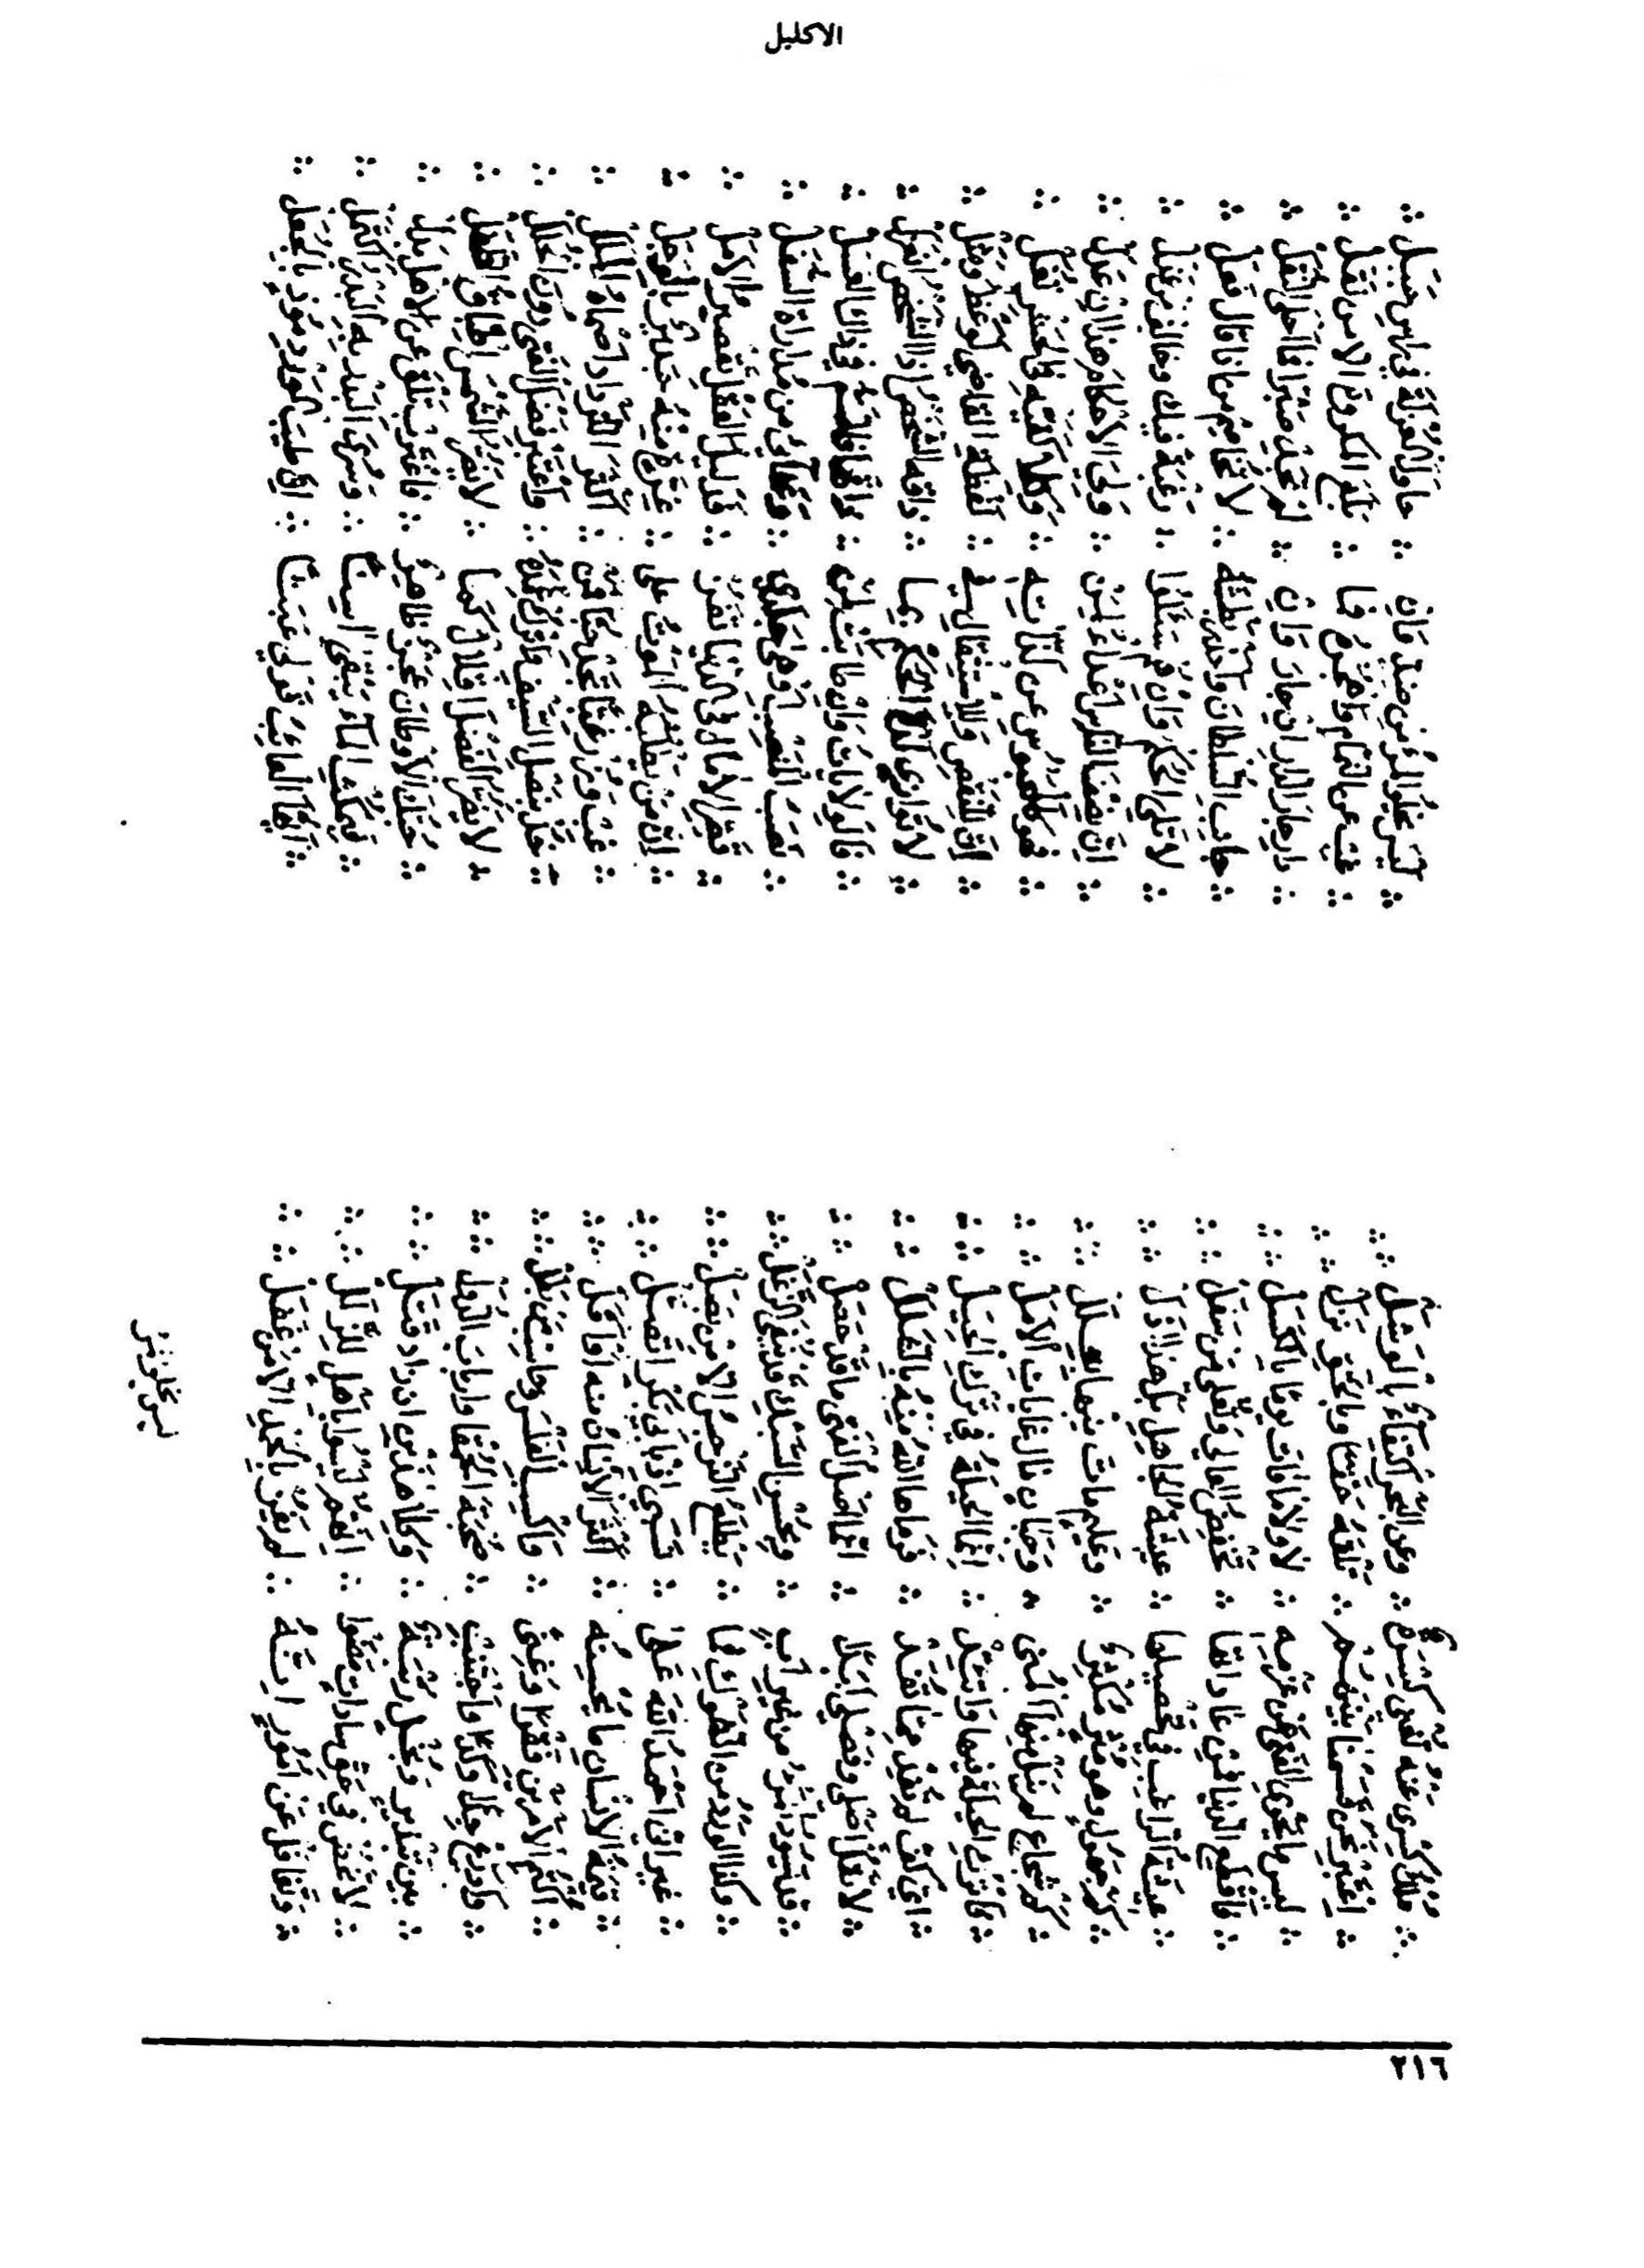 الاكليل
ملك كسرى عنه تغنى كسرة ∴ وعن البحر اكتفاء بالوشل
اعتبر نحن قسمنا بينهم ∴ تلقه حقا وبالحق نزل
ليس ما يحوى الفتى من عزمه ∴ لا ولا ما فات يوما بالكسل
فاقطع الدنيا فمن عاداتها ∴ تخفض العالي وتعلى من سفل
عيشة الراغب في تحصيلها ∴ عيشة الجاهل بل هذا اذل
كم جهول وهو مثر مكثر ∴ وعليم مات منها بعلل
كم شجاع لم ينل منها المنى ∴ وجبان نال غايات الامل
فاترك الحيلة فيها واتئد ∴ انما الحيلة في ترك الحيل
اي كف لم تفد مما تفد ∴ فرماها الله منه بالشلل
لا تقل اصلي وفصلي ابدا ∴ انما اصل الفتى ما قد حصل
قد يسود المرء من غير اب ∴ وبحسن السبك قد ينفى الزغل
وكذا الورد من الشوك وما ∴ يطلع النرجس الا من بصل
غير اني احمد الله على ∴ نسبي اذ بابي بكر اتصل
قيمة الانسان ما يحسنه ∴ اكثر الانسان منه او اقل
اكتم الامرين فقرا وغنى ∴ واكسب الفلس وحاسب من بطل
وادرع جدا وكدا واجتنب ∴ صحبة الحمقا وارباب الدول
بين تبذير وبخل رتبة ∴ وكلا هذين ان زاد قتل
لا تخض في حق سادات مضوا ∴ انهم ليسوا باهل للزلل
وتغافل عن امور انه ∴ لم يفز بالحمد الا من غفل
ليس يخلو
ليس يخلو المرء من ضد وان ∴ حاول العزلة في راس جبل
غب عن النمام واهجره فما ∴ بلغ المكروه الا من نقل
دار جار الدار ان جار وان ∴ لم تجد صبرا فما احلى النقل
جانب السلطان واحذر بطشه ∴ لا تخاصم من اذا قال فعل
لا تلي الحكم وان هم سئلوا ∴ رغبة فيك وخالف من عذل
ان نصف الناس اعداء لمن ∴ ولي الاحكام هذا ان عدل
فهو كالمحبوس عن لذاته ∴ وكلا كفيه في الحشر تغل
ان للنقص والاستثقال في ∴ لفظة القاضي لوعظ ومثل
لا توازي لذة الحكم بما ∴ ذاقه الشخص اذا الشخص انعزل
فالولايات وان طابت لمن ∴ ذاقها فالسم في ذاك العسل
نصب المنصب اوهى جلدي ∴ وعنائي من مداراة السفل
قصر الامال في الدنيا تفز ∴ فدليل العقل تقصير الامل
ان من يطلبه الموت على ∴ غرة منه جدير بالوجل
غب وزر غبا تزد حبا فمن ∴ اكثر الترداد اضناه الملل
خذ بنصل السيف واترك غمده ∴ واعتبر فضل الفتى دون الحلل
لا يضر الفضل اقلال كما ∴ لا يضر الشمس اطباق الطفل
حبك الاوطان عجز ظاهر ∴ فاغترب تلق عن الاهل بدل
فبمكث الماء يبقى اسنا ∴ وسرى البدر به البدر اكتمل
ايها العائب قولي عبثا ∴ ان طيب الورد موذ بالجعل
٢١٦